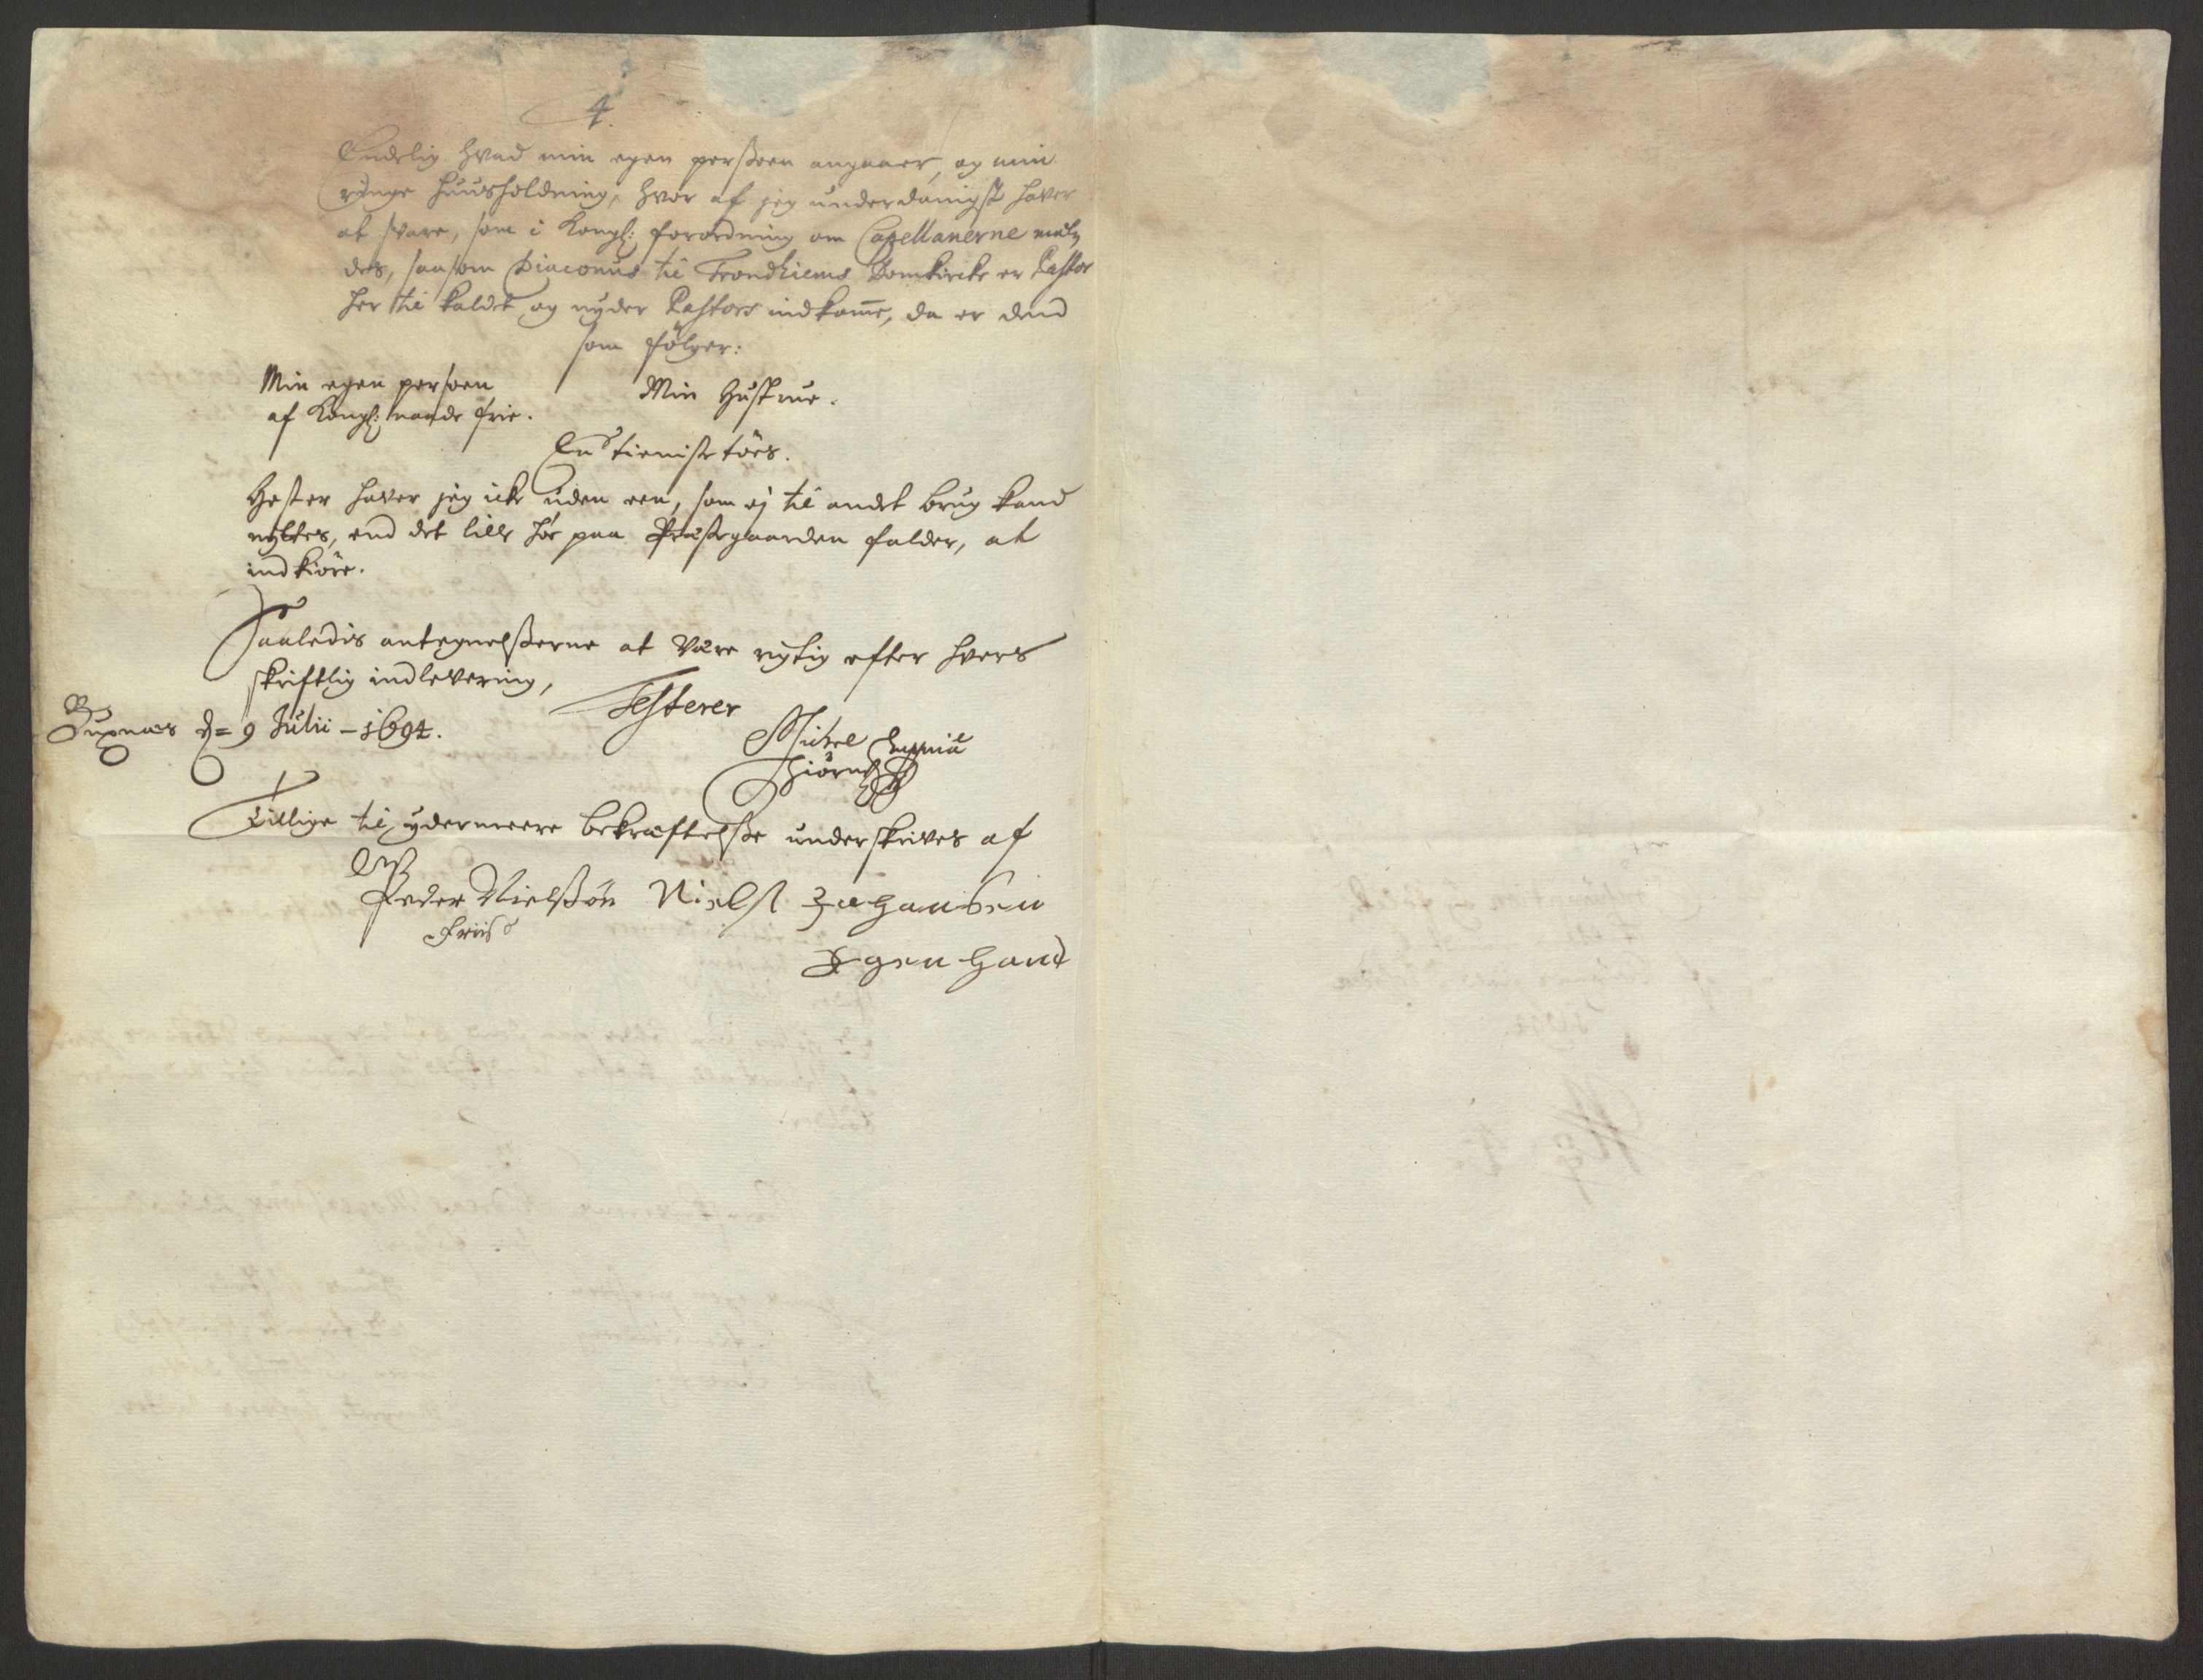 4.
Endelig hvad min egen perßoen angaaer, og min
ringe huusholdning, hvor af jeg underdanigst haver
at svare, som i Kongl: forordning om Capellanerne mel¬
des, saasom Diaconus til Trondhiems Domkircke er Pastor
her til kaldet og nyder Pastors indkomē, da er dend
som følger:
Min egen persoen
af Kongl: naade frie.
Min Hustrue.
En tieniste tøes.
Hester haver jeg icke uden een, som ej til andet brug kand
nyttes, end det lille høe paa Præstegaarden falder, at
indkiøre.
Saaledis antegnelßerne at være rigtig efter hvers
skriftlig indlevering,
Testerer
d= 9 Julii - 1694.
Michel
Tillige til ydermeere bekræftelße underskrives af
Peder Nielßøn
Friis
Niels Johansen
Egen Hand